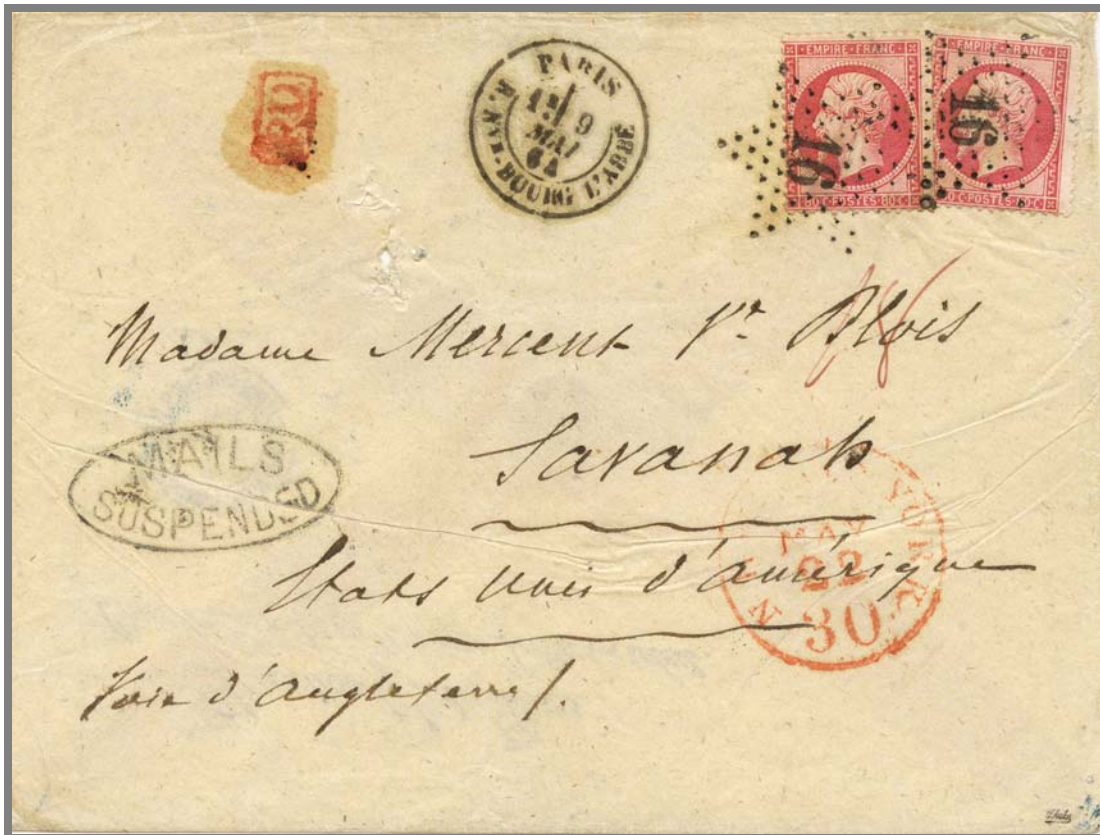 PARIS
9
MAI
64
R. NVE. BOURG L'ABBÉ
EMPIRE FRANC
80 C POSTES 80 C
16
EMPIRE FRANC
80 C POSTES 80 C
16
Madame Mercent Vve Blois
18
Savanah
MAILS
SUSPENDED
NEW YORK
MAY
22
30
Etats Unis d'amérique
Voie d'Angleterre /.